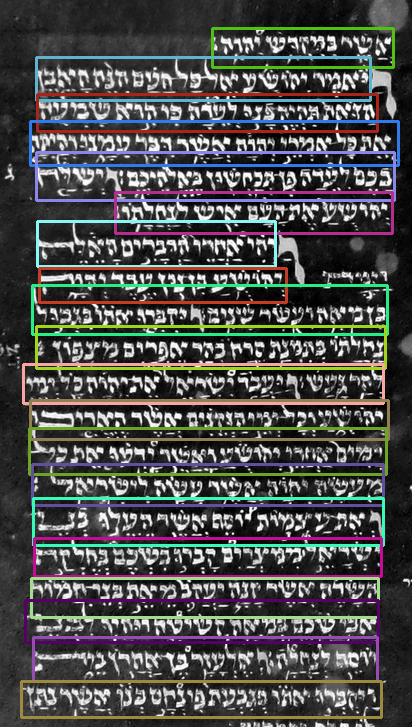 אשר במקדש יהוה
ויאמר יהושע אל כל העם הנה האבן
הזאת תהיה בנו לעדה כי היא שמעה
את כל אמרי יהוה אשר דבר עמנו והיתה
בכם לעדה פן תכחשון באלהיכם וישלח
יהושע את העם איש לנחלתו
ויהי אחרי הדברים האלה
יהושע בן נון עבד יהוה
בן מאה ועשר שנים ויקברו אתו בגבול
נחלתו בתמנת סרח בהר אפרים מצפון
להר געש ויעבד ישראל את יהוה כל ימי
יהושע וכל ימי הזקנים אשר האריכו
ימים אחרי יהושע ואשר ידעו את כל
מעשה יהוה אשר עשה לישראל
ואת עצמות יוסף אשר העלו בני
ישראל ממצרים קברו בשכם בחלקת
השדה אשר קנה יעקב מאת בני חמור
אבי שכם במאה קשיטה ויהיו לבני
יוסף לנחלה ואלעזר בן אהרן מת
ויקברו אתו בגבעת פינחס בנו אשר נתן